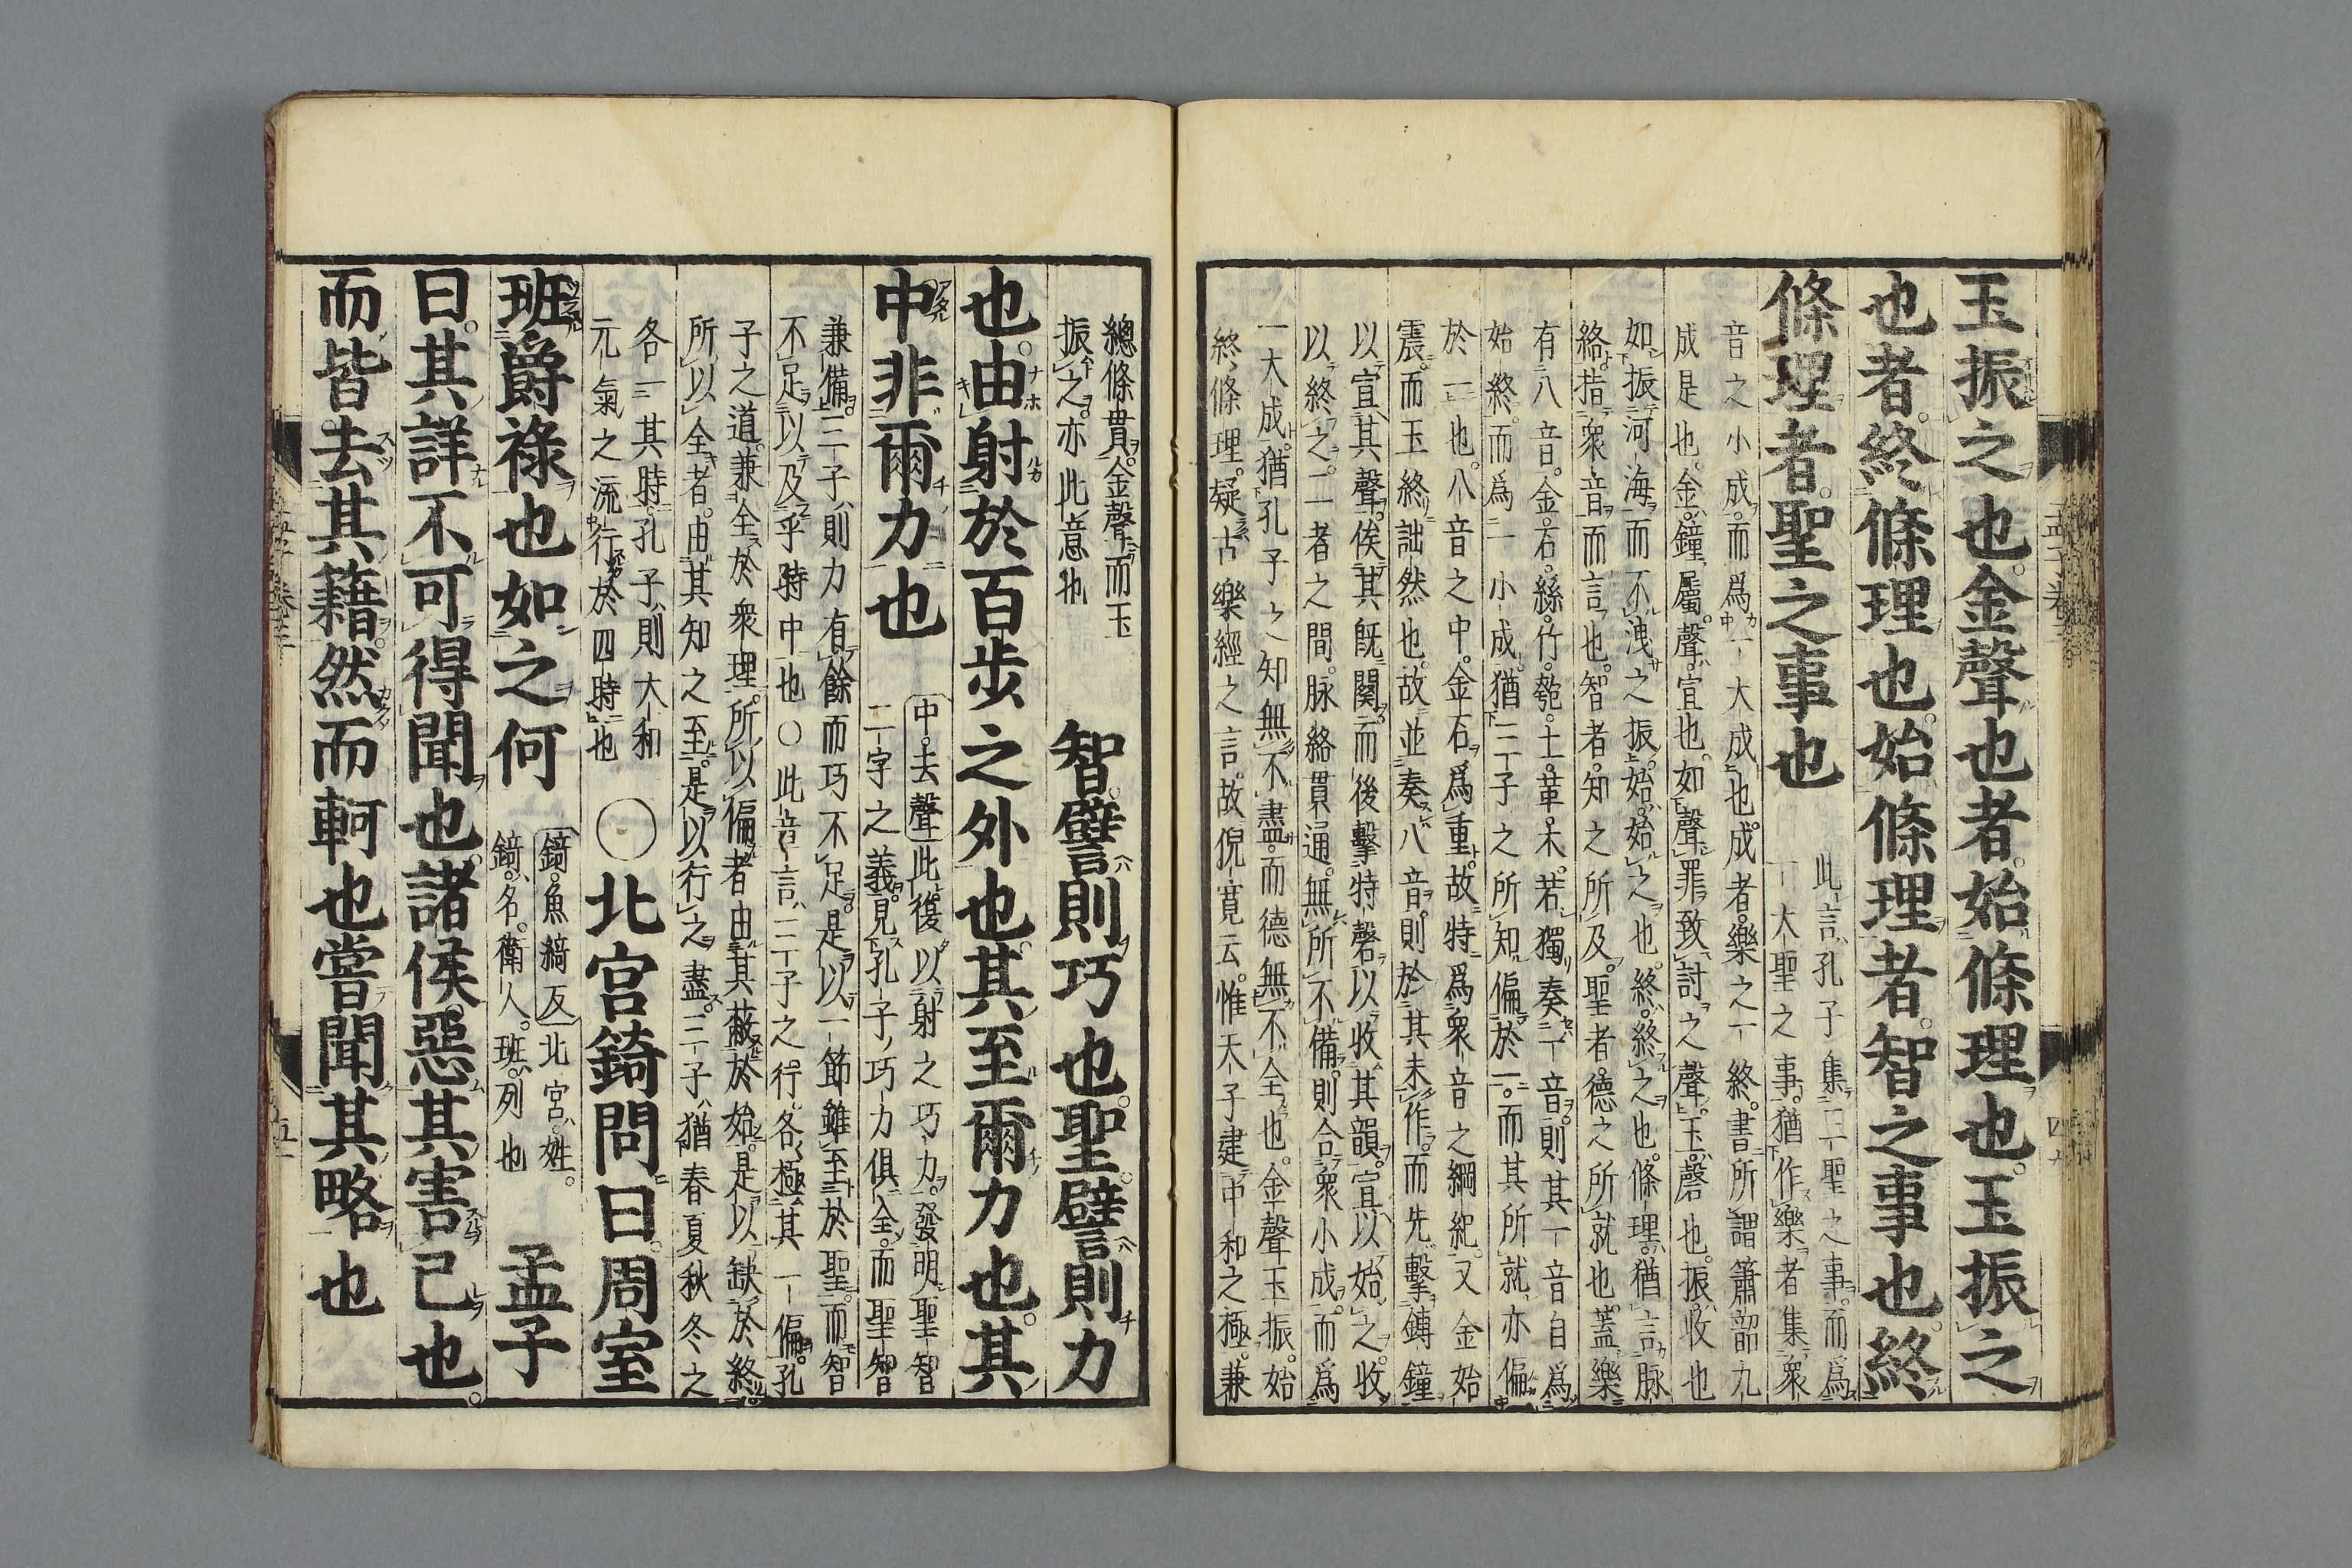 玉振之也金聲也者始條理也玉振之
也者終條理也始條理者智之事也終
條理者聖之事也
此言孔子集三聖之事而爲
一大聖之事猶作樂者集衆
音之小成而爲一大成也成者樂之一終書所謂簫韶九
成是也金鐘屬聲宣也如聲罪致討之聲玉磬也振收也
如振河海而不洩之振始始之也終終之也條理猶言脉
絡指衆音而言也智者知之所及聖者德之所就也蓋樂
有八音金石絲竹匏土革木若獨奏一音則其一音自爲
始終而爲一小成猶三子之所知偏於一而其所就亦偏
於一也八音之中金石爲重故特爲衆音之綱紀又金始
震而玉終詘然也故並奏八音則於其未作而先擊鎛鐘
以宣其聲俟其旣闋而後擊特磬以收其韻宣以始之收
以終之二者之間脉絡貫通無所不備則合衆小成而爲
一大成猶孔子之知無不盡而德無不全也金聲玉振始
終條理疑古樂經之言故倪寬云惟天子建中和之極兼
總條貫金聲而玉
振之亦此意也
智譬則巧也聖譬則力
也由射於百步之外也其至爾力也其
中非爾力也
中去聲此復以射之巧力發明聖智
二字之義見孔子巧力俱全而聖智
兼備三子則力有餘而巧不足是以一節雖至於聖而智
不足以及乎時中也○此章言三子之行各極其一偏孔
子之道兼全於衆理所以偏者由其蔽於始是以缺於終
所以全者由其知之至是以行之盡三子猶春夏秋冬之
各一其時孔子則大和
元氣之流行於四時也
○北宮錡問曰周室
班爵祿也如之何
錡魚綺反北宮姓
錡名衞人班列也
孟子
曰其詳不可得聞也諸侯惡其害己也
而皆去其籍然而軻也嘗聞其略也